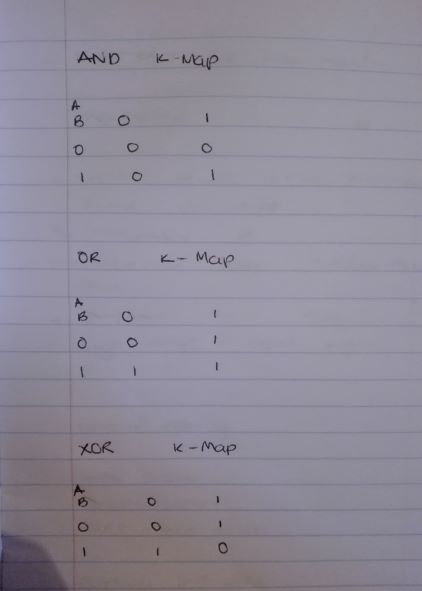 AND K-Map
A
B 0 1
0 0 0
1 0 1
OR K-Map
A
B 0 1
0 0 1
1 1 1
XOR K-Map
A
B 0 1
0 0 1
1 1 0